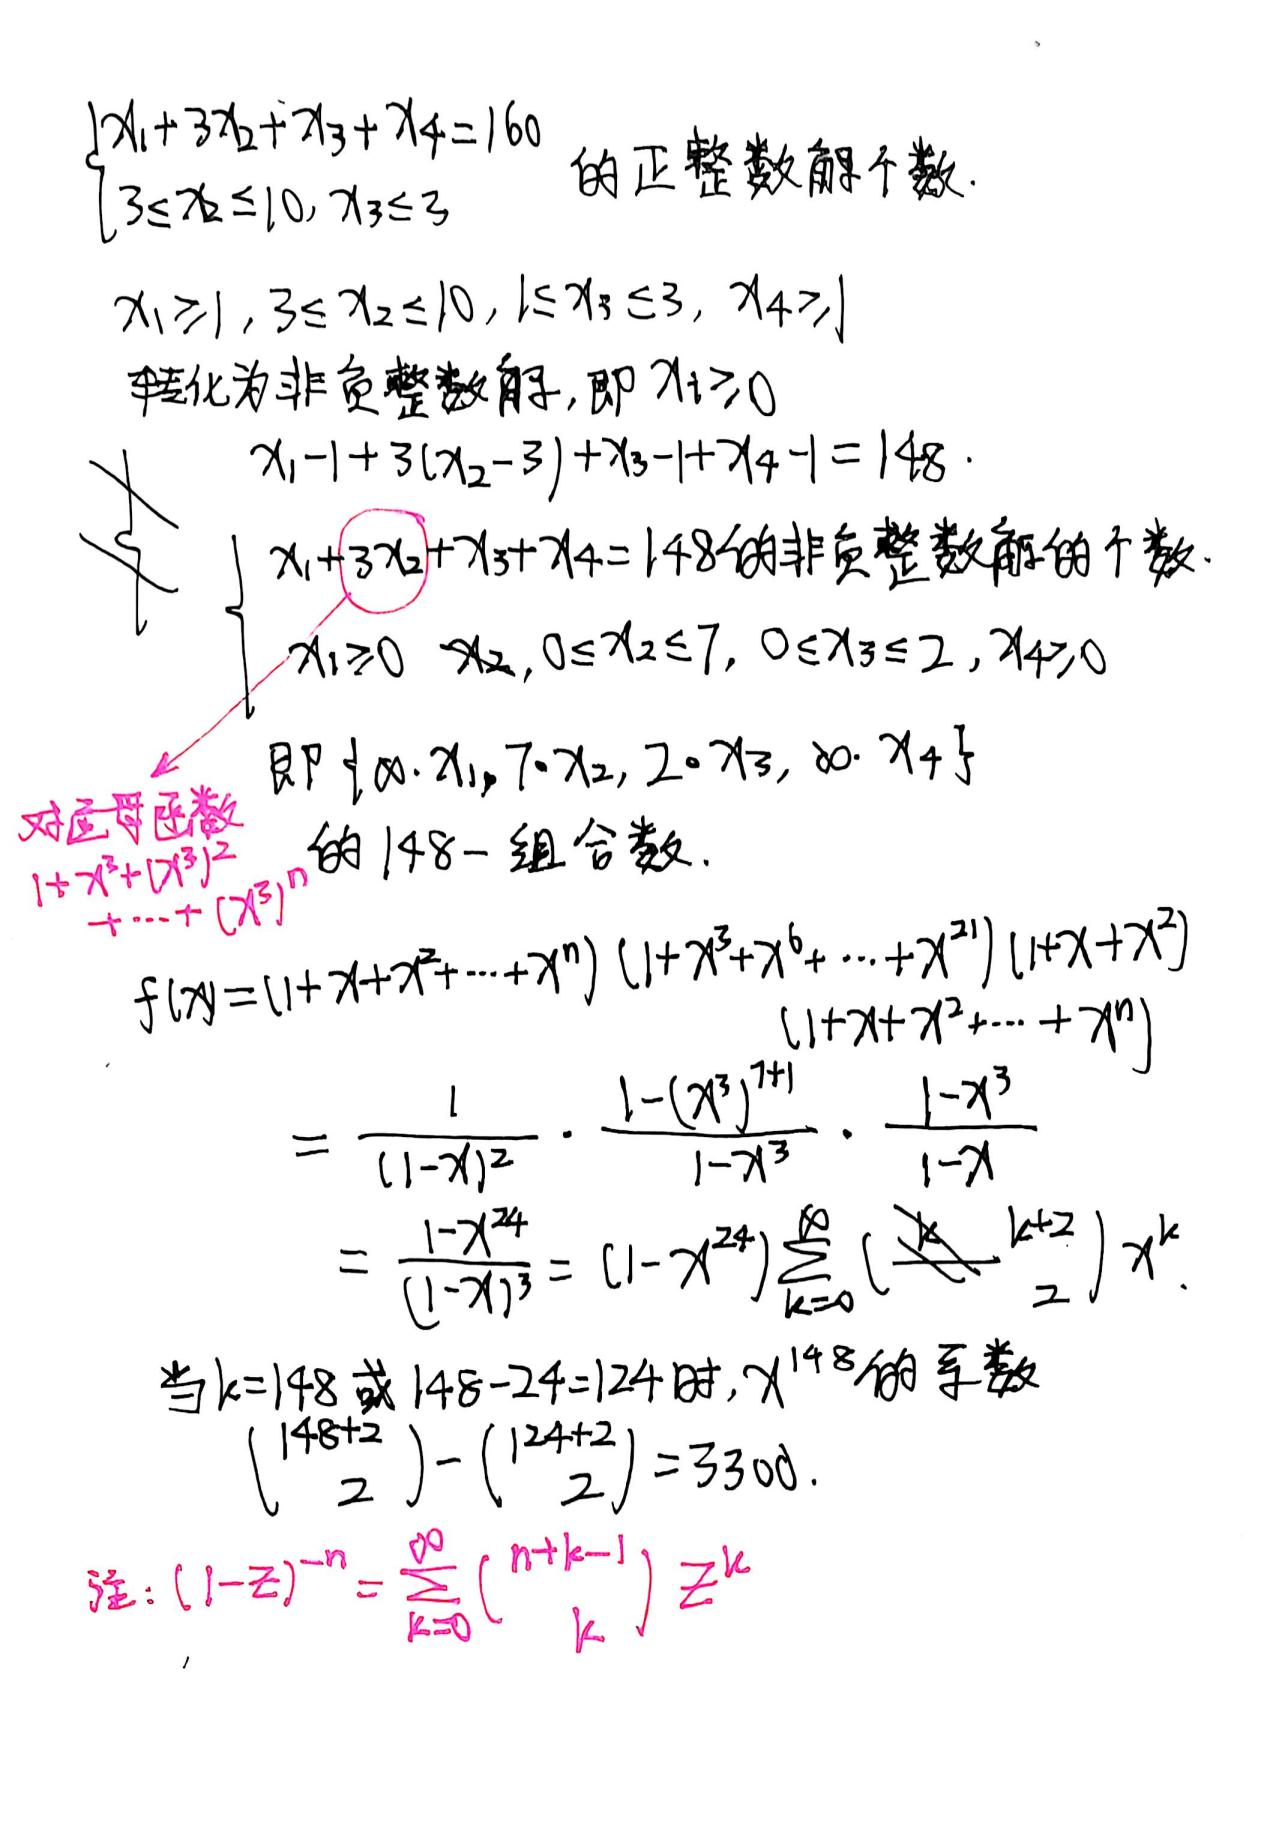 x₁+3x₂+x₃+x₄=160
3≤x₂≤10, x₃≤3
的正整数解个数.
x₁≥1, 3≤x₂≤10, 1≤x₃≤3, x₄≥1
转化为非负整数解, 即 xᵢ≥0
x₁-1+3(x₂-3)+x₃-1+x₄-1=148.
x₁+3x₂+x₃+x₄=148的非负整数解的个数.
x₁≥0 x₂, 0≤x₂≤7, 0≤x₃≤2, x₄≥0
即{∞·x₁, 7·x₂, 2·x₃, ∞·x₄}
的148-组合数.
对应母函数
1+x³+(x³)²
+…+(x³)ⁿ
f(x)=(1+x+x²+…+xⁿ)(1+x³+x⁶+…+x²¹)(1+x+x²)
(1+x+x²+…+xⁿ)
= \frac{1}{(1-x)²} · \frac{1-(x³)^{7+1}}{1-x³} · \frac{1-x³}{1-x}
= \frac{1-x²⁴}{(1-x)³} = (1-x²⁴) \sum_{k=0}^{∞} \binom{k+2}{2} xᵏ.
当k=148或148-24=124时, x¹⁴⁸的系数
\binom{148+2}{2} - \binom{124+2}{2} = 3300.
注: (1-z)⁻ⁿ = \sum_{k=0}^{∞} \binom{n+k-1}{k} zᵏ